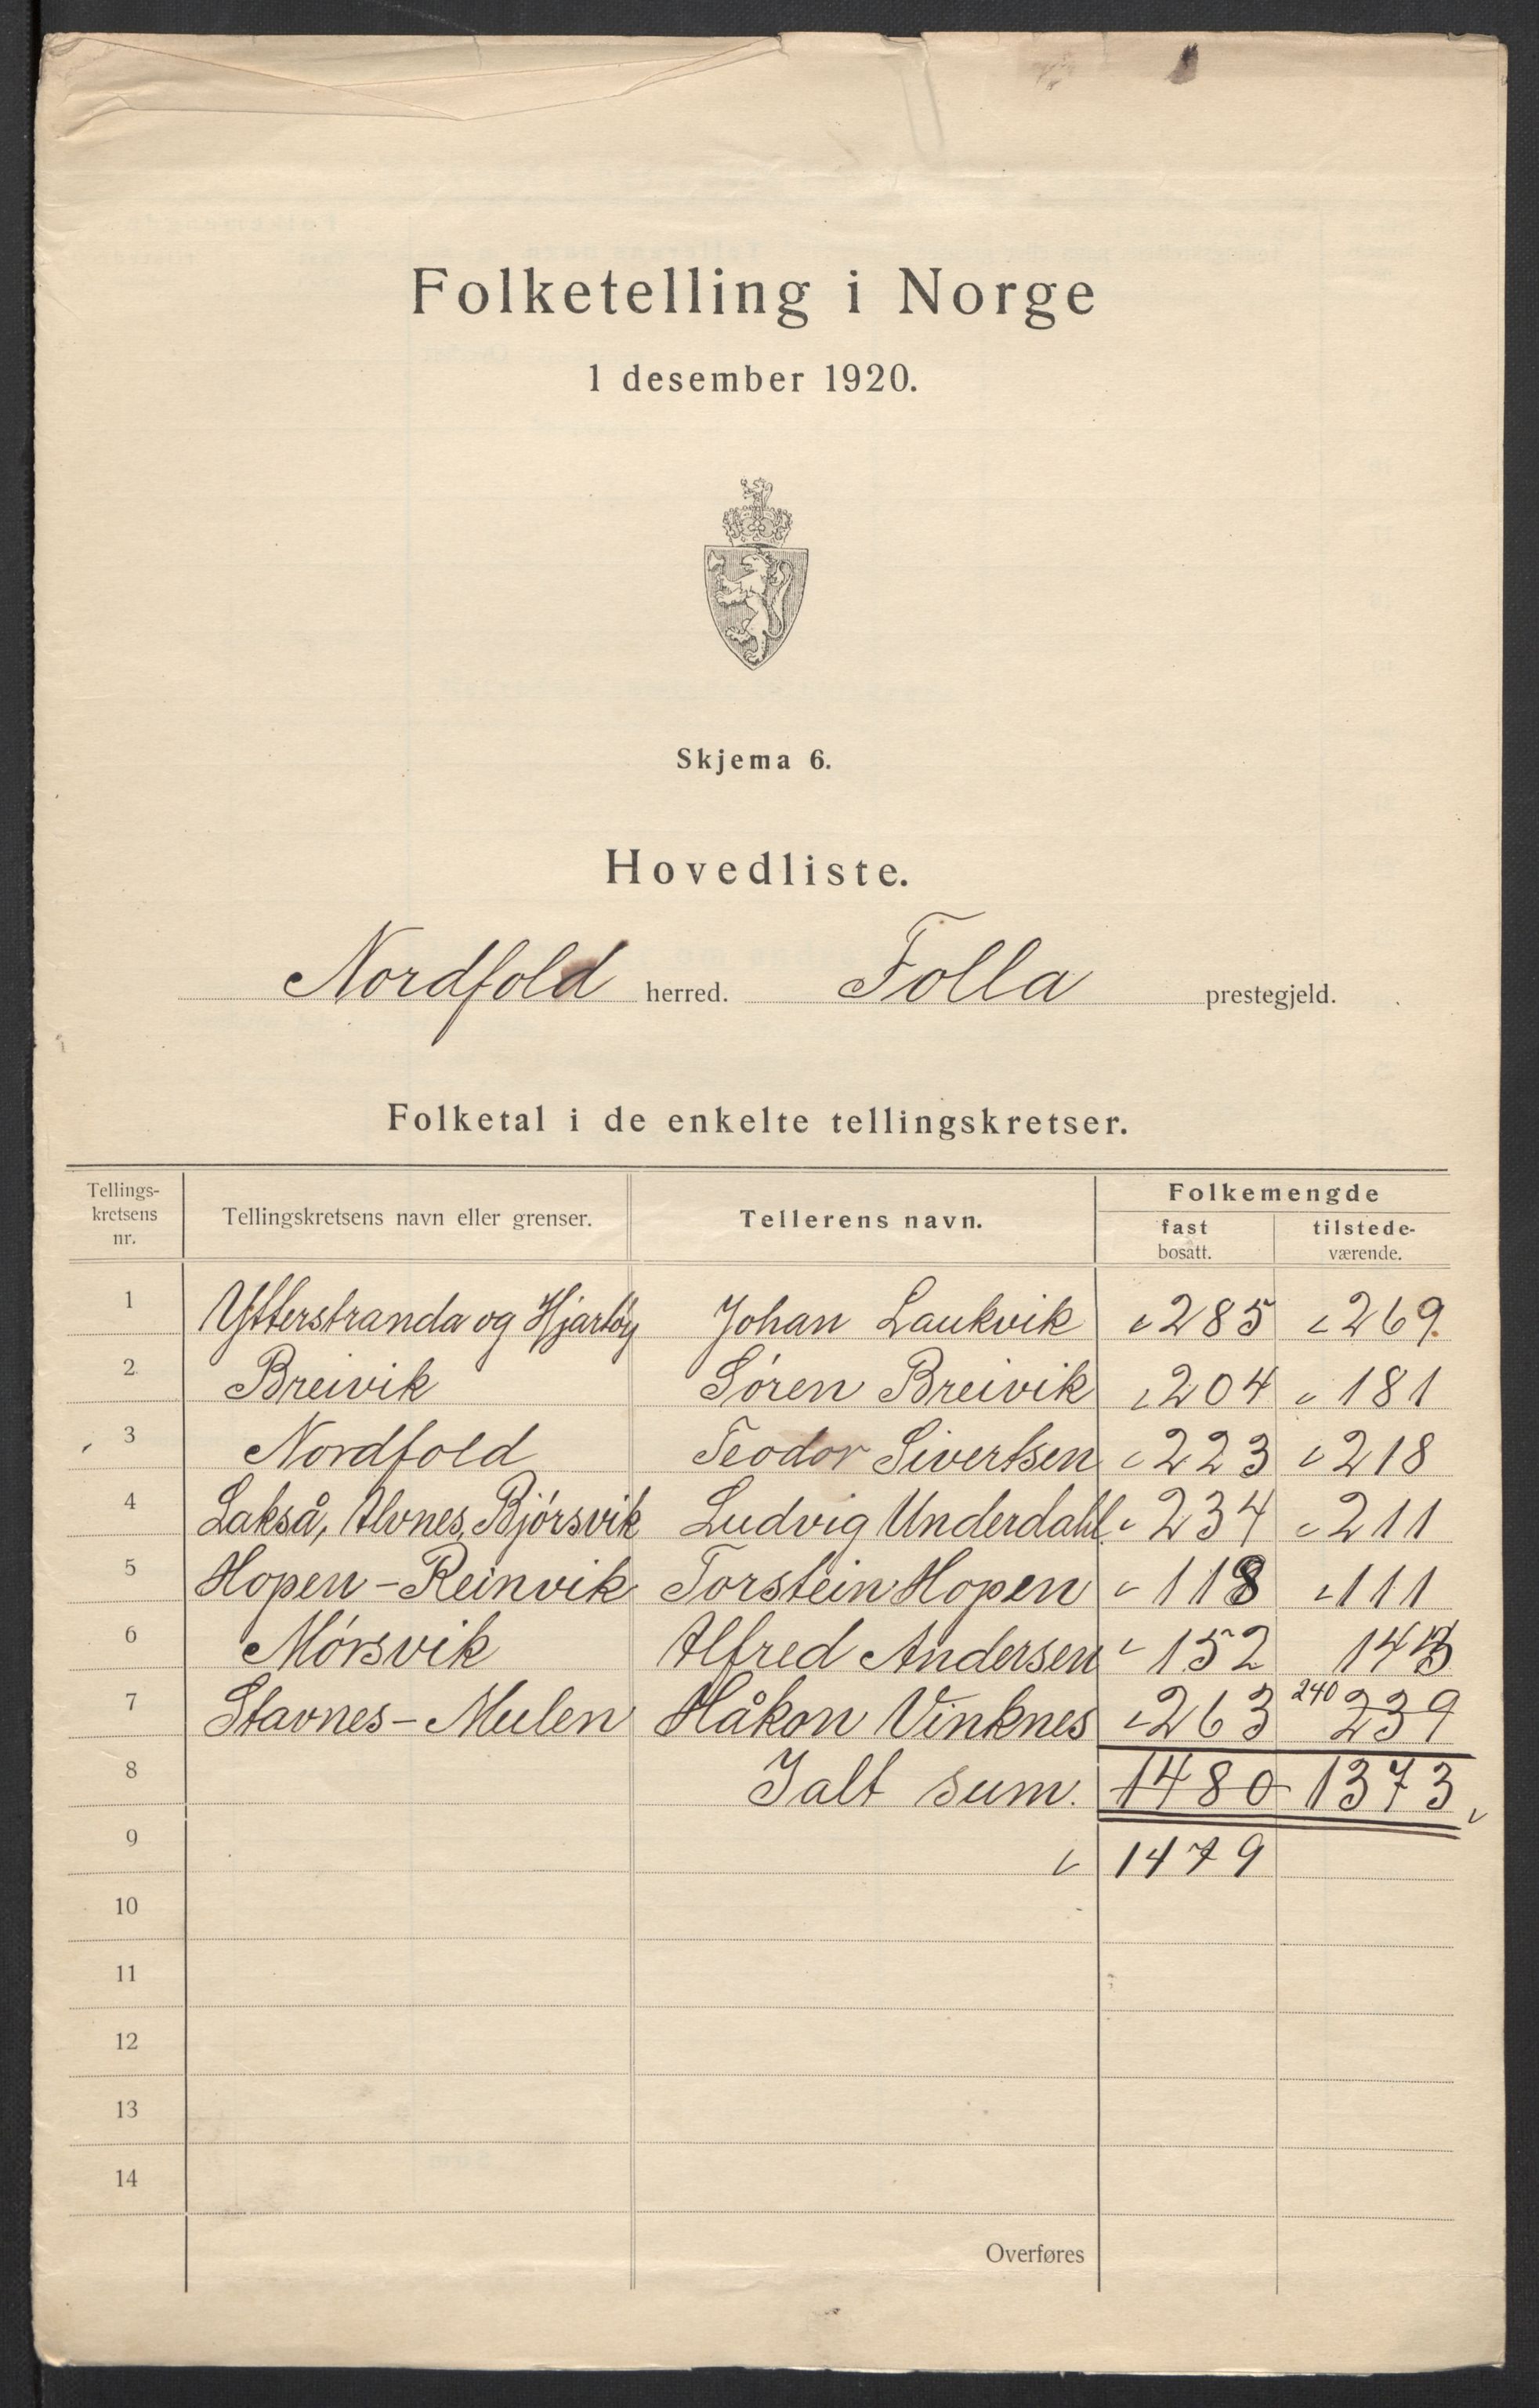 Folketelling i Norge
1 desember 1920.
Skjema 6.
Hovedliste.
Nordfold herred. Folla prestegjeld.
Folketal i de enkelte tellingskretser.
Tellings-kretsens nr. Tellingskretsens navn eller grenser. Tellerens navn. Folkemengde
fast bosatt. tilstede-værende.
1 Ytterstranda og Hjartøy Johan Laukvik 285 269
2 Breivik Søren Breivik 204 181
3 Nordfold Teodor Sivertsen 223 218
4 Lakså, Alvnes, Bjørsvik Ludvig Underdahl. 234 211
5 Hopen - Reinvik Torstein Hopen 118 111
6 Mørsvik Alfred Andersen 152 143
7 Stavnes - Mulen Håkon Vinknes 263 240 239
8 Ialt sum. 1480 1373
9 1479
10
11
12
13
14
Overføres